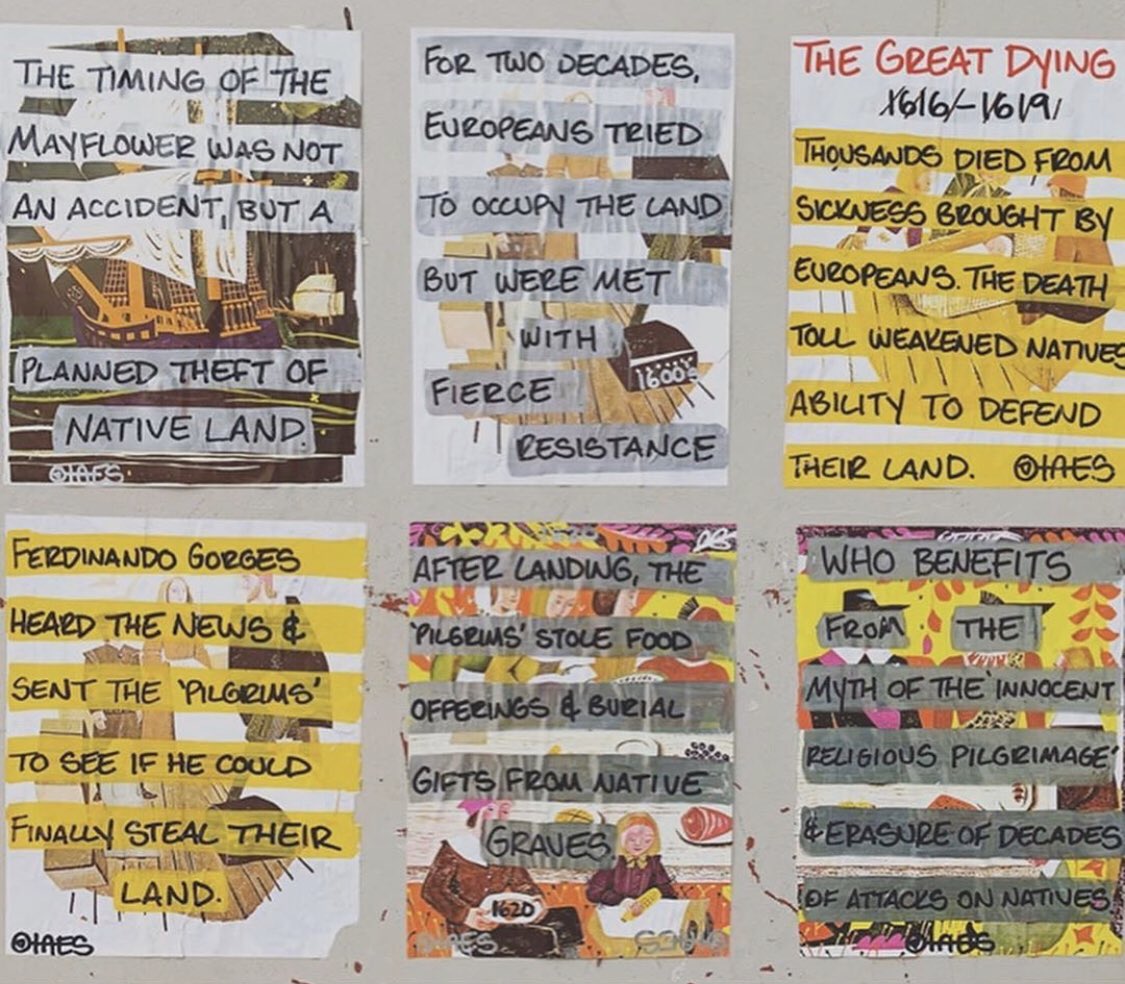 THE TIMING OF THE
MAYFLOWER WAS NOT
AN ACCIDENT, BUT A
PLANNED THEFT OF
NATIVE LAND.
FOR TWO DECADES,
EUROPEANS TRIED
TO OCCUPY THE LAND
BUT WERE MET
WITH
1600s
FIERCE
RESISTANCE
THE GREAT DYING
1616-1619
THOUSANDS DIED FROM
SICKNESS BROUGHT BY
EUROPEANS. THE DEATH
TOLL WEAKENED NATIVES
ABILITY TO DEFEND
THEIR LAND.
FERDINANDO GORGES
HEARD THE NEWS &
SENT THE 'PILGRIMS'
TO SEE IF HE COULD
FINALLY STEAL THEIR
LAND.
AFTER LANDING, THE
'PILGRIMS' STOLE FOOD
OFFERINGS & BURIAL
GIFTS FROM NATIVE
GRAVES
1620
WHO BENEFITS
FROM THE
MYTH OF THE 'INNOCENT
RELIGIOUS PILGRIMAGE'
& ERASURE OF DECADES
OF ATTACKS ON NATIVES